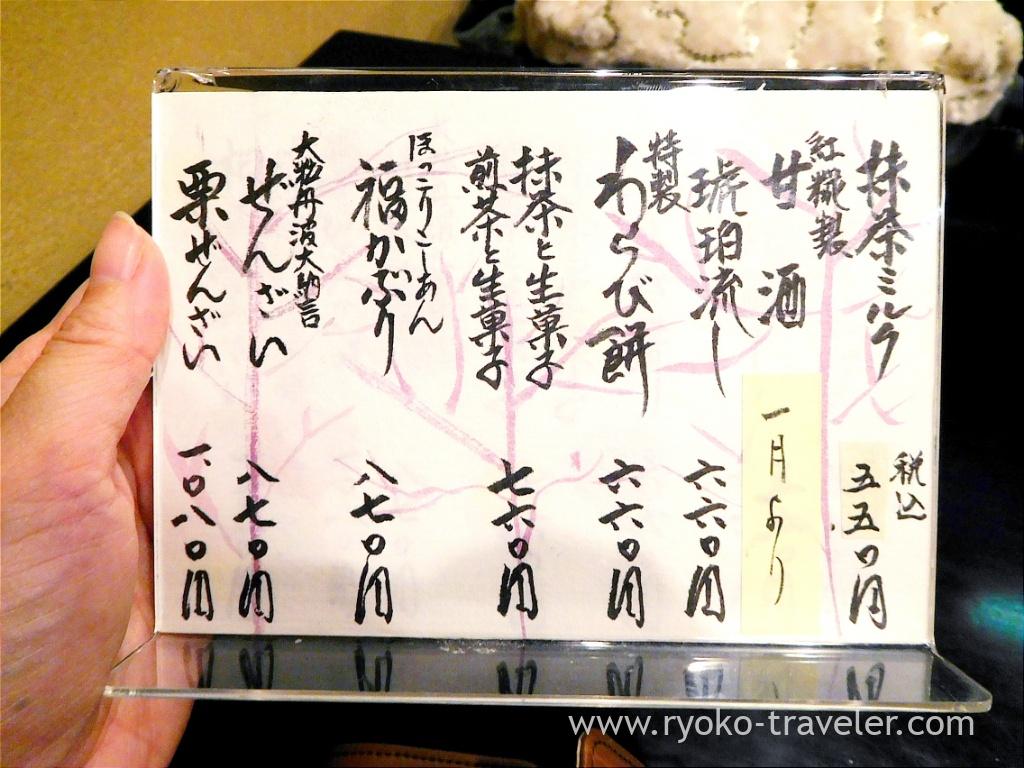 抹茶ミルク
税込
五五〇円
紅糀製
甘酒
一月より
琥珀流し
六六〇円
特製
わらび餅
六六〇円
抹茶と生菓子
煎茶と生菓子
七六〇円
ほっこりこしあん
福かぶり
八七〇円
大粒丹波大納言
ぜんざい
八七〇円
栗ぜんざい
一、〇八〇円
www.ryoko-traveler.com